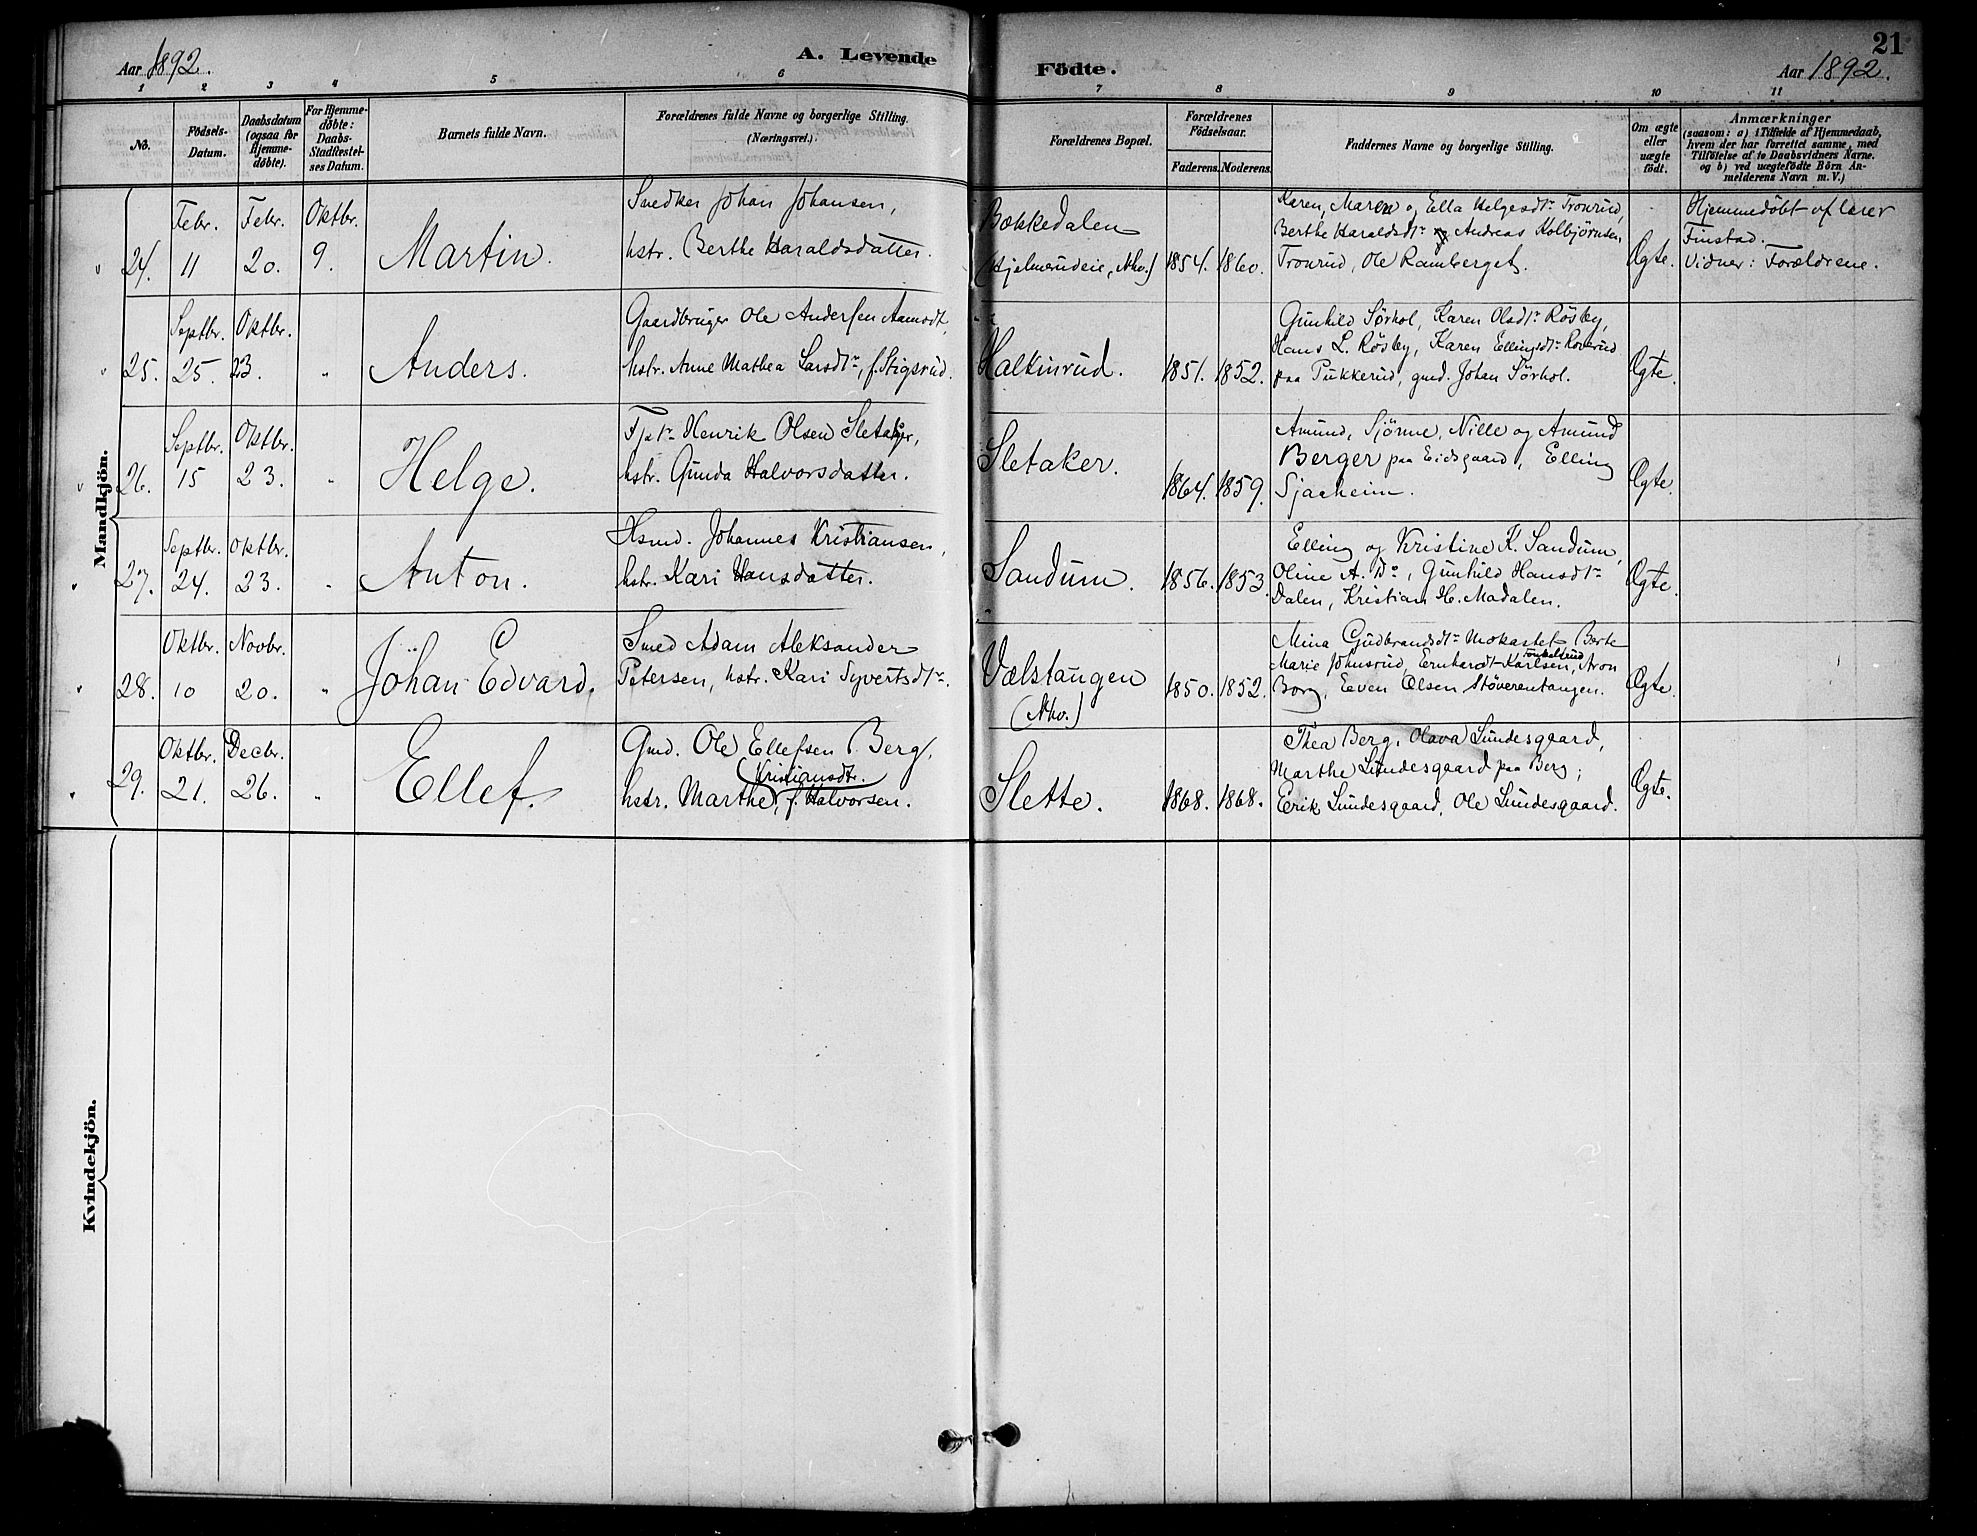 Aar 1892.
A. Levende
Födte.
21
Aar 1892.
1 2 3 4 5 6 7 8 9 10 11
No.
Födsels-
Datum.
Daabsdatum
(ogsaa for
Hjemme-
döbte).
For Hjemme-
döbte:
Daabs-
Stadfæstel-
ses Datum.
Barnets fulde Navn.
Forældrenes fulde Navne og borgerlige Stilling.
(Næringsvei.)
Forældrenes Bopæl.
Forældrenes
Födselsaar.
Faderens. Moderens.
Faddernes Navne og borgerlige Stilling.
Om ægte
eller
uægte
födt.
Anmærkninger
(saasom: a) i Tilfælde af Hjemmedaab,
hvem der har forrettet samme, med
Tilföielse af to Daabsvidners Navne.
og b) ved uægtefödte Börn An-
melderens Navn m. V.)
Mandkjön.
24.
Febr.
11
Febr.
20.
Oktbr.
9.
Martin.
Snedker Johan Johansen,
hstr. Berthe Haraldsdatter.
Bækkedalen
(Hjelmerudeie, Nho.)
1854. 1860.
Karen, Maren og Ella Helgesdtr Tronrud,
Berthe Haraldsdtr og Andreas Kolbjørnsen
Tronrud, Ole Ramberget.
Ægte.
Hjemmedøbt af lærer
Finstad.
Vidner: Forældrene.
25.
Septbr.
25.
Oktbr.
23.
"
Anders.
Gaardbruger Ole Andersen Aamodt,
hstr. Anne Mathea Larsdtr, f. Stigsrud.
Halkinrud.
1851. 1852.
Gunhild Sørhol, Karen Olsdtr Røsby,
Hans L. Røsby, Karen Ellingsdtr Roverud
paa Pukkerud, gmd. Johan Sørhol.
Ægte.
26.
Septbr.
15
Oktbr.
23.
"
Helge.
Fjstr Henrik Olsen Sletaker,
hstr. Gunda Halvorsdatter.
Sletaker.
1864. 1859.
Amund, Sjönne, Nille og Amund
Berger paa Eidsgaard, Elling
Sjaaheim.
Ægte.
27.
Septbr.
24.
Oktbr.
23.
"
Anton.
Hsmd. Johannes Kristiansen,
hstr. Kari Hansdatter.
Sandum.
1856. 1853.
Elling og Kristine K. Sandum,
Oline A. Do, Gunhild Hansdtr
Dalen, Kristian H. Madalen.
Ægte
28.
Oktbr.
10
Novbr.
20.
"
Johan Edvard.
Smed Adam Aleksander
Petersen, hstr. Kari Syvertsdtr.
Vælstangen
(Nho.)
1850. 1852.
Mina Gudbrandsdtr Mokastet, Berte
Marie Johnsrud, Ernhardt Karlsen, Aron
Borg, Even Olsen Støverentangen.
Ægte.
29.
Oktbr.
21.
Decbr.
26.
"
Ellef.
Gmd. Ole Ellefsen Berg,
Kristiansdtr.
hstr. Marthe, f. Halvorsen.
Slette.
1868. 1868.
Thea Berg, Olava Lundesgaard,
Marthe Lundesgaard paa Berg;
Eerik Lundesgaard, Ole Lundesgaard.
Ægte.
Kvindekjön.